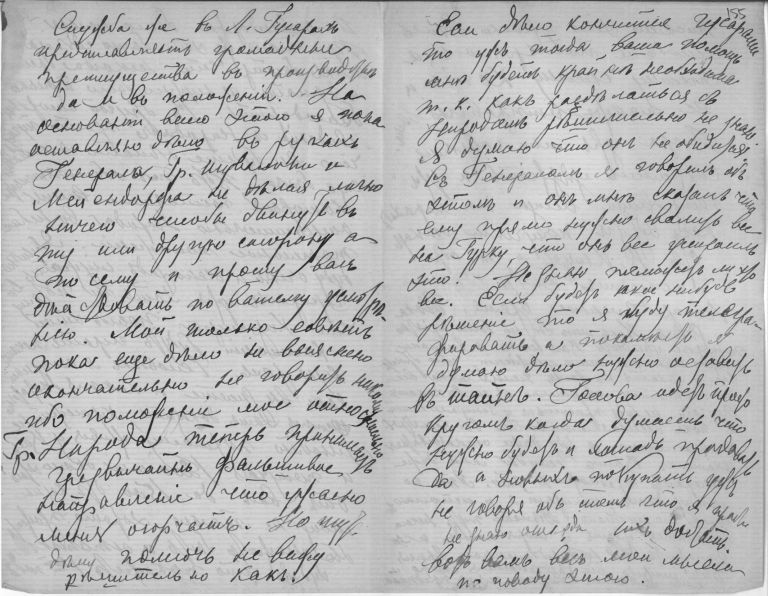 Служба же въ Л. Гусарахъ
представляетъ громадныя
преимущества въ производствѣ
да и въ положеніи. На
основаніи всего этого я пока
оставляю дѣло въ рукахъ
Генерала, Гр. Шувалова и
Мейендорфа не дѣлая лично
ничего чтобы двинуть въ
ту или другую сторону а
по сему и прошу васъ
дѣйствовать по вашему усмотрѣ
нію. Мой только совѣтъ
пока еще дѣло не выяснено
окончательно не говорить никому
ибо положеніе мое относительно
Гр. Нирода теперь принимаетъ
чрезвычайно фальшивое
направленіе что ужасно
меня огорчаетъ. Но
дѣлу помочь не вижу
рѣшительно какъ.
155
Если дѣло кончится гусарами
то ужъ тогда ваша помощь
мнѣ будетъ крайне необходима
т. к. какъ раздѣлаться съ
Ниродомъ рѣшительно не знаю.
Я думаю что онъ не обидится
Съ Генераломъ я говорилъ объ
этомъ и онъ мнѣ сказалъ что
ему прямо нужно свалить все
на Гурку, что онъ все устроилъ
это. Не знаю поможетъ ли это
все. Если будетъ какое нибудь
рѣшеніе то я буду телегра-
фировать а покамѣстъ я
думаю дѣло нужно оставить
въ тайнѣ. Голова идетъ просто
кругомъ когда думаешь что
нужно будетъ и лошадь продавать
да а новыхъ покупать ужъ
не говоря объ томъ что я прямо
не знаю откуда ихъ достать.
Вотъ вамъ весь мои мысли
по поводу этого.